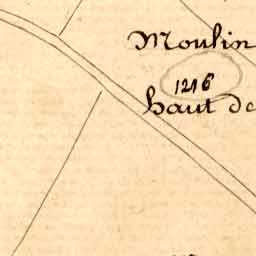 Moulin
1216
haut de